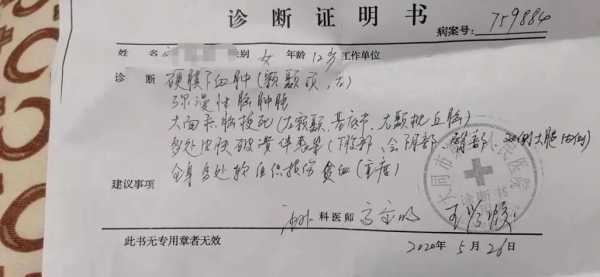 诊断证明书
病案号：759884
姓名 别 女 年龄 12岁 工作单位
诊断 硬膜下血肿（额颞顶，左）
弥漫性脑肿胀
大面积脑梗死（左额颞、基底节、左颞枕丘脑）
多处皮肤破溃伴感染（下腹部、会阴部、臀部、双侧大腿内侧）
全身多处软组织损伤 贫血（重度）
建议事项
科医师
此书无专用章者无效
2020年5月26日
大同市 人民医院
诊断书